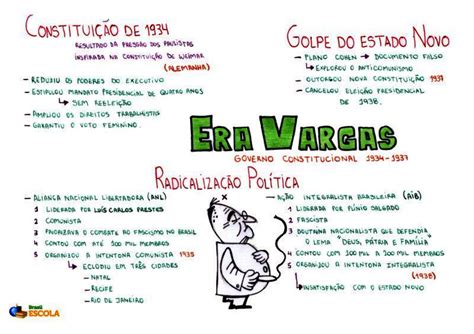 CONSTITUIÇÃO DE 1934
RESULTADO DA PRESSÃO DOS PAULISTAS
INSPIRADA NA CONSTITUIÇÃO DE WEIMAR
(ALEMANHA)
- REDUZIU OS PODERES DO EXECUTIVO
- ESTIPULOU MANDATO PRESIDENCIAL DE QUATRO ANOS
↳ SEM REELEIÇÃO
- AMPLIOU OS DIREITOS TRABALHISTAS
- GARANTIU O VOTO FEMININO.
GOLPE DO ESTADO NOVO
- PLANO COHEN → DOCUMENTO FALSO
↳ EXPLOROU O ANTICOMUNISMO
- OUTORGOU NOVA CONSTITUIÇÃO 1937
- CANCELOU ELEIÇÃO PRESIDENCIAL
DE 1938.
ERA VARGAS
GOVERNO CONSTITUCIONAL 1934-1937
RADICALIZAÇÃO POLÍTICA
→ ALIANÇA NACIONAL LIBERTADORA (ANL)
1 LIDERADA POR LUÍS CARLOS PRESTES
2 COMUNISTA
3 PRIORIZAVA O COMBATE AO FASCISMO NO BRASIL
4 CONTOU COM ATÉ 100 MIL MEMBROS
5 ORGANIZOU A INTENTONA COMUNISTA 1935
↳ ECLODIU EM TRÊS CIDADES
- NATAL
- RECIFE
- RIO DE JANEIRO
→ AÇÃO INTEGRALISTA BRASILEIRA (AIB)
1 LIDERADA POR PLÍNIO SALGADO
2 FASCISTA
3 DOUTRINA NACIONALISTA QUE DEFENDIA
O LEMA "DEUS, PÁTRIA E FAMÍLIA
4 CONTOU COM 100 MIL A 200 MIL MEMBROS
5 ORGANIZOU A INTENTONA INTEGRALISTA
(1938)
↳ INSATISFAÇÃO COM O ESTADO NOVO
Brasil
ESCOLA